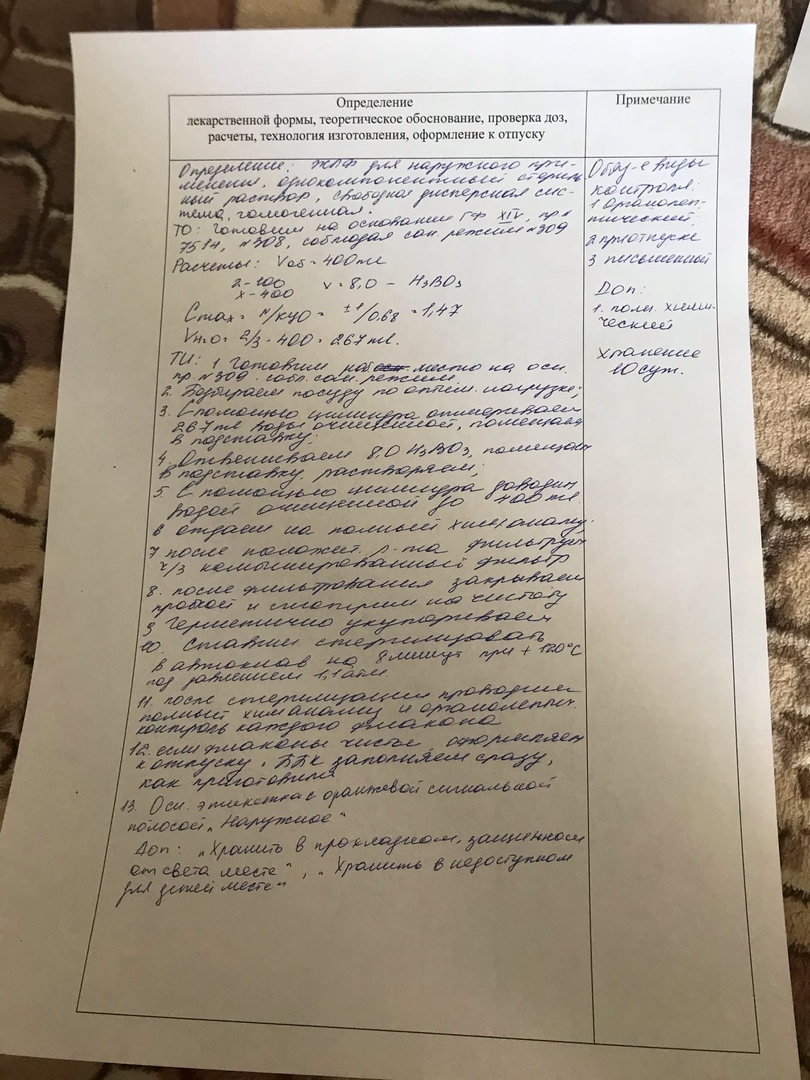 Определение
лекарственной формы, теоретическое обоснование, проверка доз,
расчеты, технология изготовления, оформление к отпуску
Примечание
Определение: ЖЛФ для наружного при-
менения, однокомпонентный стериль-
ный раствор, свободная дисперсная сис-
тема, гомогенная.
ТО: Готовим на основании ГФ XIV, пр.
751н, №308, соблюдая сан. режим №309
Расчеты: Vоб = 400 ml
2 - 100
x - 400
x = 8,0 - H₃BO₃
Cmax = N/КУО = ±1/0,68 = 1,47
VH₂O = 2/3 · 400 = 267 ml.
ТИ: 1 Готовим раб место на осн.
пр №309. собл. сан. режим.
2. Подбираем посуду по оптим. нагрузке;
3. С помощью цилиндра отмериваем
267 ml воды очищенной, помещаем
в подставку;
4. Отвешиваем 8,0 H₃BO₃, помещаем
в подставку, растворяем;
5. С помощью цилиндра доводим
водой очищенной до 400 ml
6 отдаем на полный хим. анализ.
7 после положит. р-та фильтруем
ч/з комбинированный фильтр
8. после фильтрования закрываем
пробкой и смотрим на чистоту
9 Герметично укупориваем
10. Ставим стерилизовать
в автоклав на 8 минут при + 120°C
под давлением 1,1 атм.
11. после стерилизации проводим
полный хим. анализ и органолепт.
контроль каждого флакона
12. если флаконы чистые, оформляем
к отпуску. ППК заполняем сразу,
как приготовили
13. Осн. этикетка с оранжевой сигнальной
полосой „Наружное"
Доп: „Хранить в прохладном, защищенном
от света месте", „Хранить в недоступном
для детей месте"
Обяз-е виды
контроля:
1 органолеп-
тический
2 при отпуске
3 письменный
Доп:
1. полн. хими-
ческий
Хранение
10 сут.